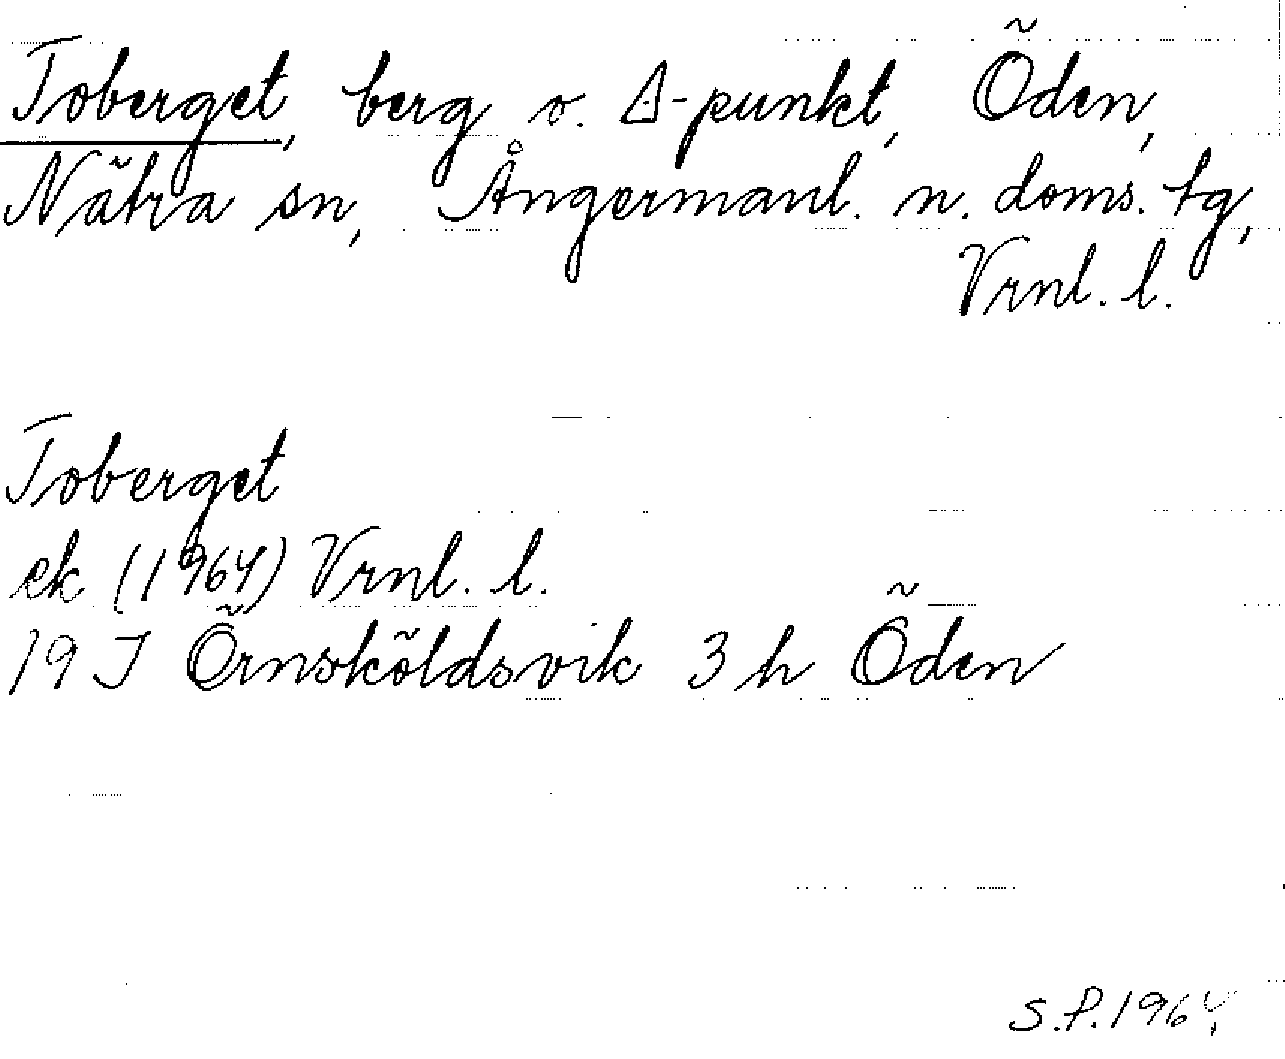 Toberget, berg o. Δ-punkt, Öden,
Nätra sn, Ångermanl. n. doms. tg,
Vrnl. l.
Toberget
ek (1964) Vrnl. l.
19 J Örnsköldsvik 3 h Öden
S.P. 1964